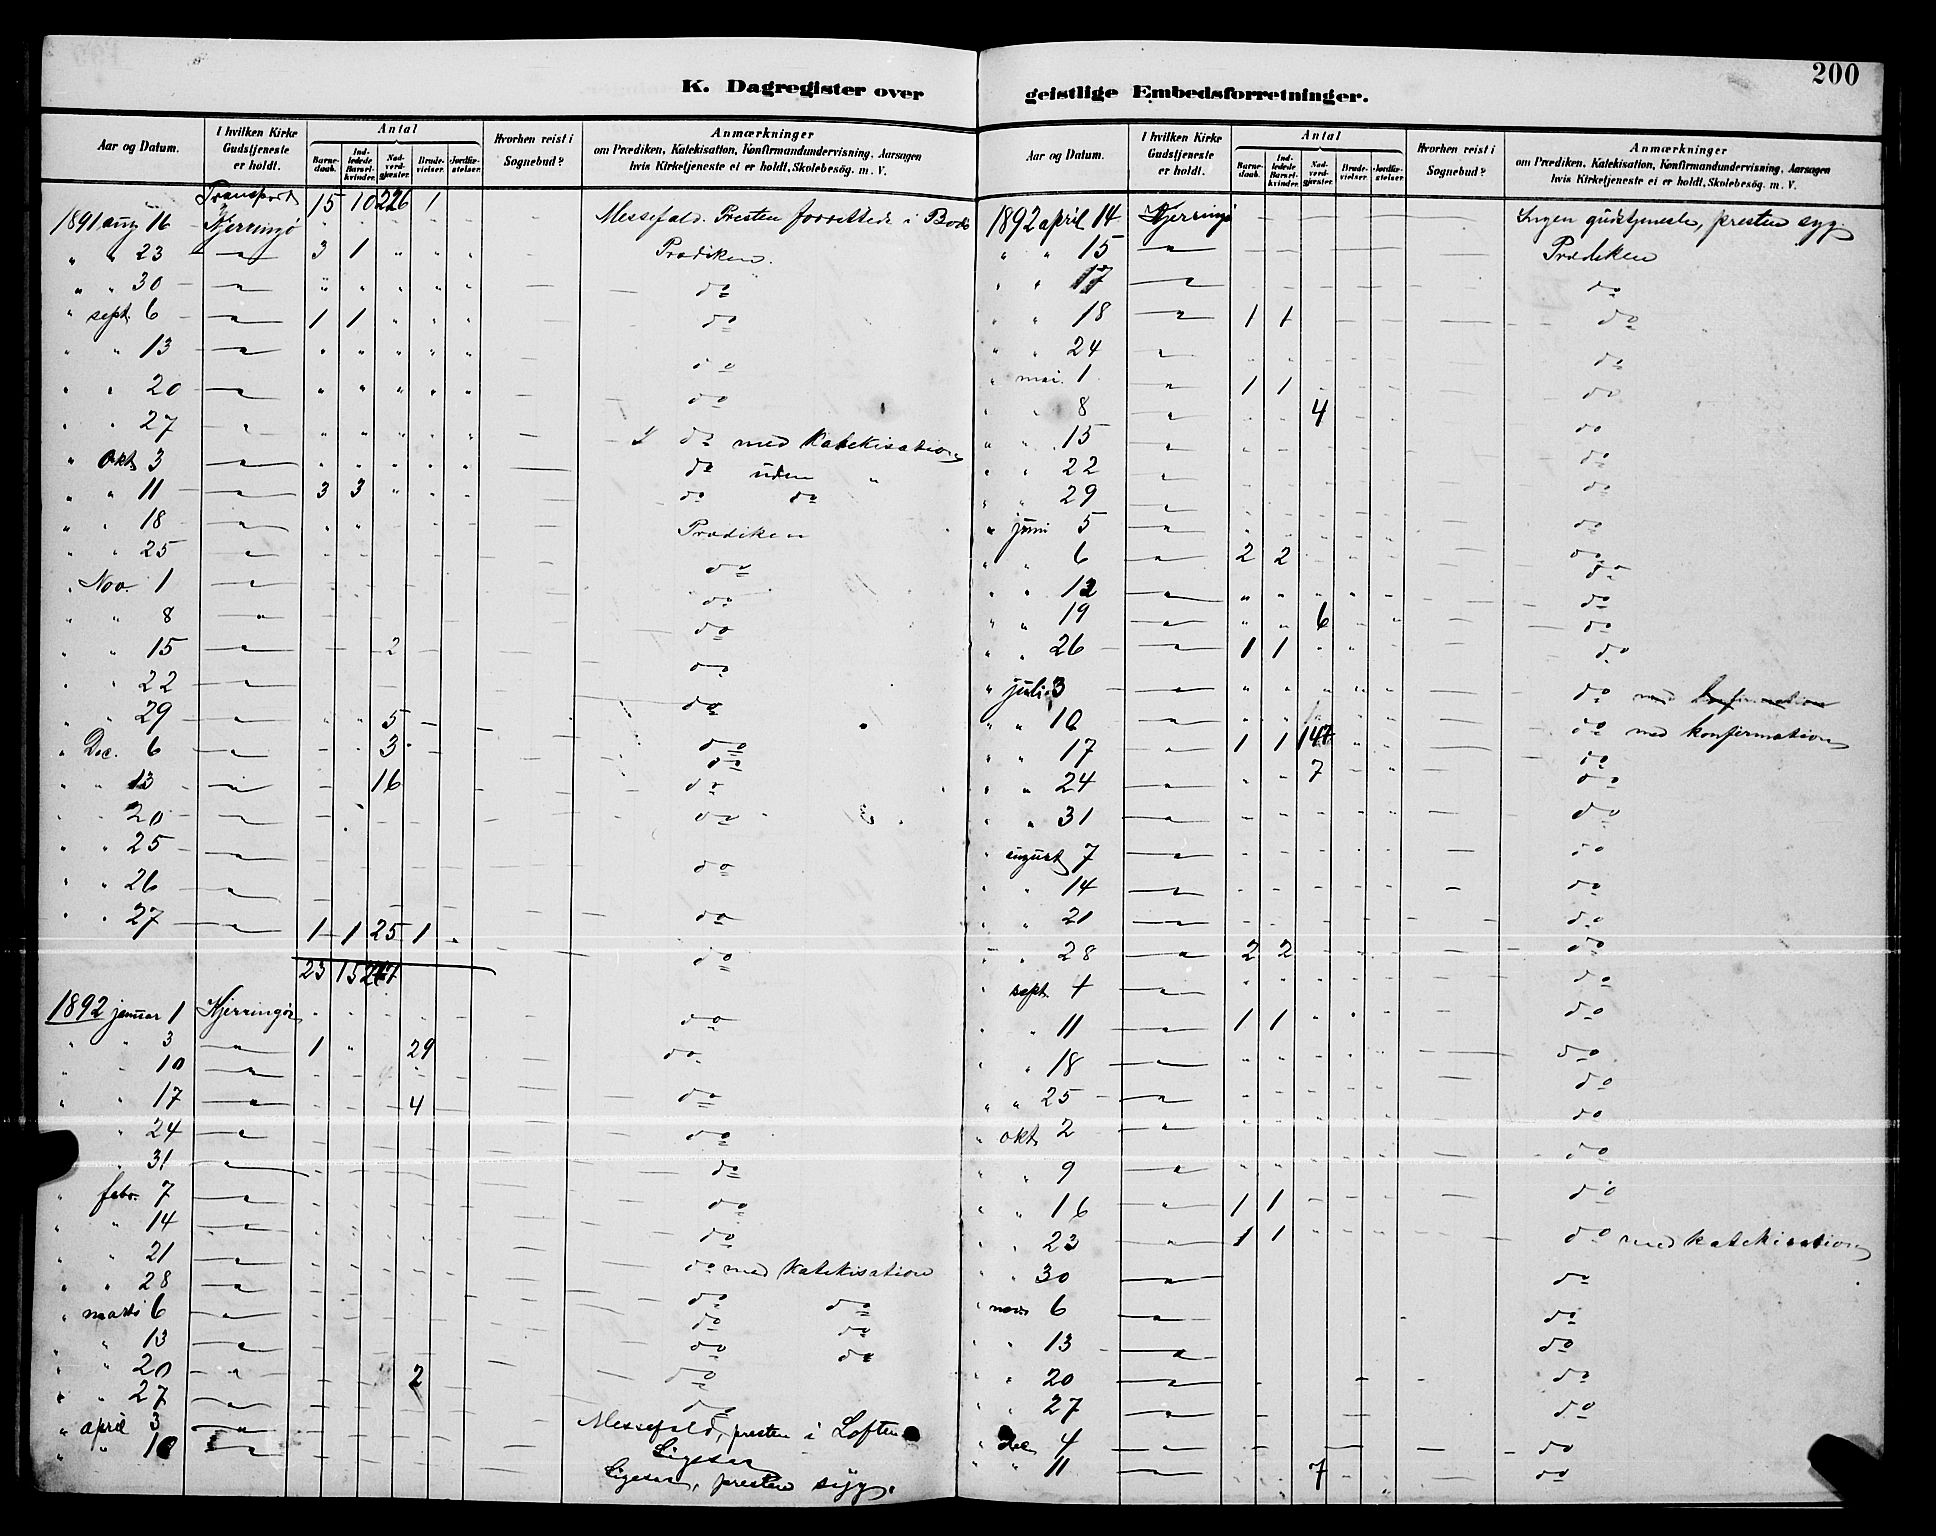 200
K. Dagregister over geistlige Embedsforretninger.
Aar og Datum. I hvilken Kirke Gudstjeneste er holdt. Antal Barnedaab. Indledede Barselkvinder. Nadverdgjæster. Brudevielser. Jordfæstelser. Hvorhen reist i Sognebud? Anmærkninger om Prædiken, Katekisation, Konfirmandundervisning, Aarsagen hvis Kirketjeneste ei er holdt, Skolebesøg. m. V.
Transport 15 10 226 1
1891 aug 16 Kjerringø Messefald. Presten forrettede i Bodø
" " 23 " 3 1 " " " Prædiken.
" " 30 " " " " " " do
" sept. 6 " 1 1 " " " do
" " 13 " " " " " " do
" " 20 " " " " " " do
" " 27 " " " " " " do med katekisation
" Okt. 3 " " " " " " do uden "
" " 11 " 3 3 " " " do do
" " 18 " " " Prædiken
" " 25 " do
" Nov. 1 " do
" " 8 " do
" " 15 " 2 do
" " 22 " do
" " 29 " " " 5 do
" Dec. 6 " 3 do
" " 13 " 16 do
" " 20 " do
" " 25 " do
" " 26 " do
" " 27 " 1 1 25 1 do
23 15
1892 januar 1 Kjerringø do
" " 3 " 1 " 29 do
" " 10 "
" " 17 " 4 do
" 24 " do
" 31 " do
" febr. 7 " do
" " 14 " do
" " 21 " do med katekisation
" " 28 " do do
" marts 6 " do do
" " 13 " do do
" " 20 " 2 do
" " 27 " do
" april 3 " Messefald, presten i Loften
" " 10 " Ligesaa
Ligesaa, presten syg.
Aar og Datum. I hvilken Kirke Gudstjeneste er holdt. Antal Barnedaab. Indledede Barselkvinder. Nadverdgjæster. Brudevielser. Jordfæstelser. Hvorhen reist i Sognebud? Anmærkninger om Prædiken, Katekisation, Konfirmandundervisning, Aarsagen hvis Kirketjeneste ei er holdt, Skolebesøg. m. V.
1892 april 14 Kjerringø Ingen gudstjeneste, presten syg
" " 15 " Prædiken
" " 17 " do
" " 18 " 1 1 do
" " 24 " do
" mai. 1 " 1 1 do
" " 8 " 4 do
" " 15 " do
" " 22 " do
" " 29 " do
" juni 5 " do
" " 6 " 2 2 do
" " 12 " do
" " 19 " 6 do
" " 26 " 1 1 do
" juli 3 " do med konfirmation
" " 10 " do med konfirmation
" " 17 " 1 1 do
" " 24 " 7 do
" " 31 " do
" august 7 " do
" " 14 " do
" " 21 " do
" " 28 " 2 2 do
" sept. " do
" " 11 " 1 1 do
" " 18 " do
" " 25 " do
" okt. 2 " do
" " 9 " do
" " 16 " 1 1 do
" " 23 " 1 1 do med katekisation
" " 30 " do
" nov. 6 " do
" " 13 " do
" " 20 " do
" " 27 " do
" dec 4 " do
" " 11 " 7 do